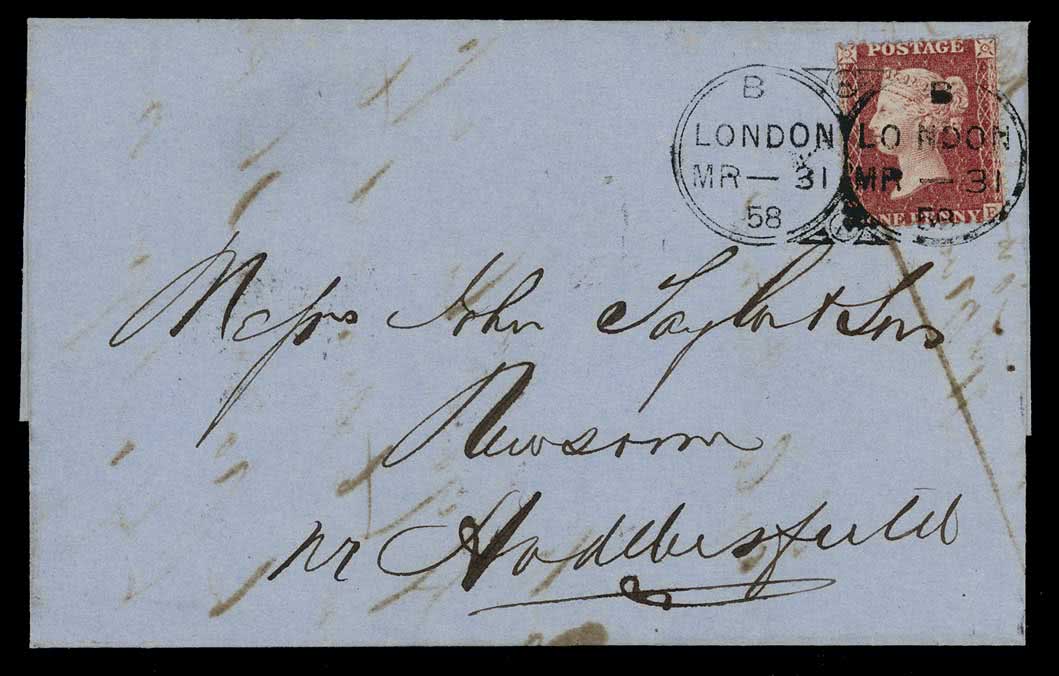 POSTAGE
B B
LONDON LONDON
MR — 31 MR — 31
58 58
ONE PENNY
Messrs John Taylor & Sons
Newsom
nr Huddersfield